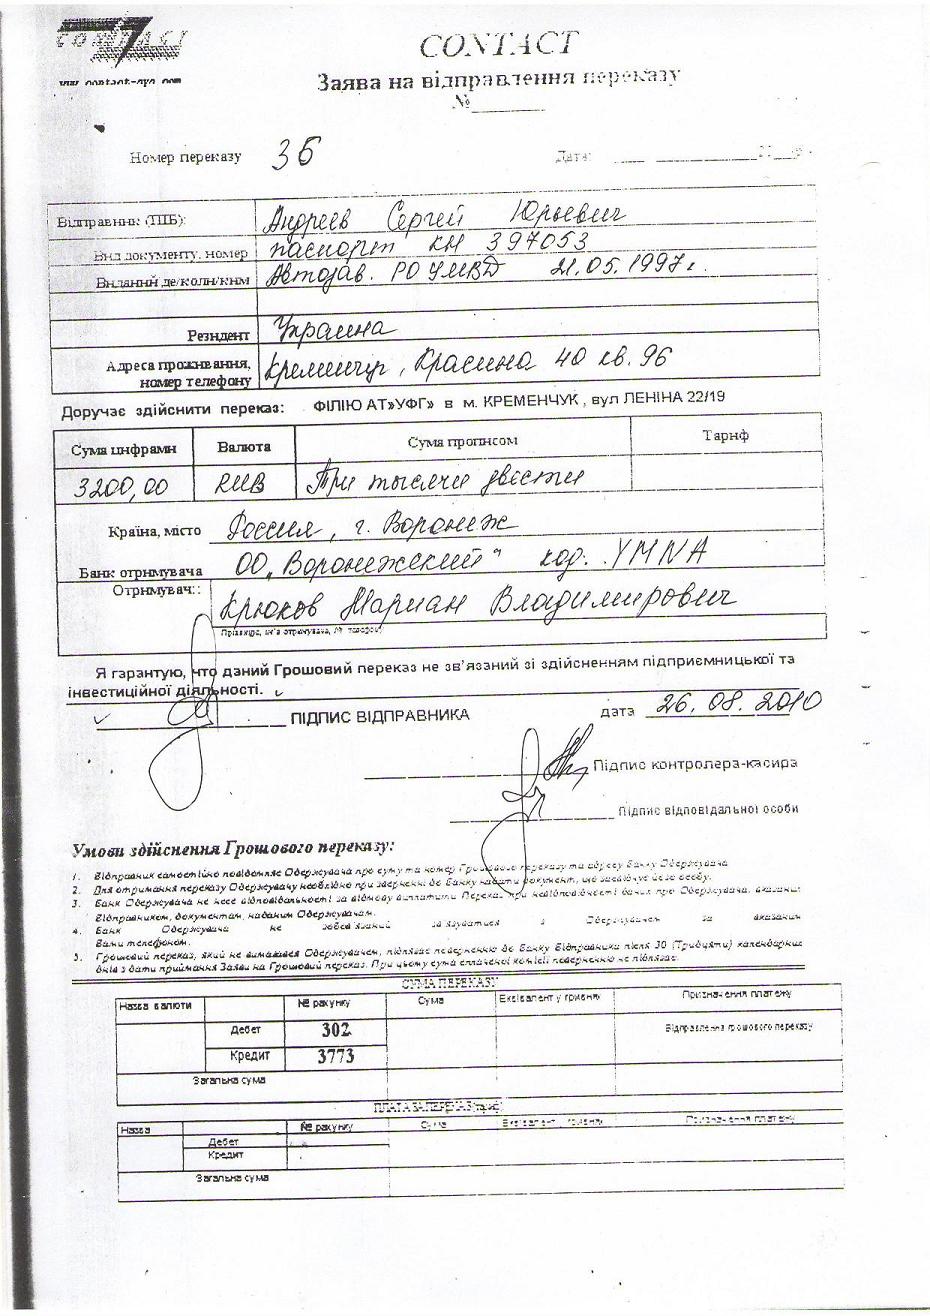 CONTACT
www.contact-sys.com
CONTACT
Заява на відправлення переказу
№
Номер переказу 36 Дата:
Відправник (ПІБ): Андреев Сергей Юрьевич
Вид документу, номер паспорт КН 397053
Виданий де/коли/ким Автозав. РО УМВД 21.05.1997г.
Резидент Украина
Адреса проживання, номер телефону Кременчуг, Красина 40 кв. 96
Доручає здійснити переказ: ФІЛІЮ АТ»УФГ» в м. КРЕМЕНЧУК , вул ЛЕНІНА 22/19
Сума цифрами Валюта Сума прописом Тариф
3200,00 RUB Три тысячи двести
Країна, місто Россия, г. Воронеж
Банк отримувача ОО „Воронежский" код: YMNA
Отримувач:: Крюков Мариан Владимирович
Прізвище, ім'я отримувача, (№ телефону)
Я гарантую, что даний Грошовий переказ не зв'язаний зі здійсненням підприємницької та
інвестиційної діяльності.
ПІДПИС ВІДПРАВНИКА дата 26.08.2010
Підпис контролера-касира
Підпис відповідальної особи
Умови здійснення Грошового переказу:
1. Відправник самостійно повідомляє Одержувача про суму та номер Грошового переказу та адресу Банку Одержувача
2. Для отримання переказу Одержувачу необхідно при зверненні до Банку надати документ, що засвідчує його особу.
3. Банк Одержувача не несе відповідальності за відмову виплатити Переказ при невідповідності даних про Одержувача, вказаних
Відправником, документам, наданим Одержувачам.
4. Банк Одержувача не зобов'язаний зв'язуватися з Одержувачем за вказаним
Вами телефоном.
5. Грошовий переказ, який не вимагався Одержувачем, підлягає поверненню до Банку Відправника після 30 (Тридцяти) календарних
днів з дати приймання Заяви на Грошовий переказ. При цьому сума сплаченої комісії поверненню не підлягає.
СУМА ПЕРЕКАЗУ
Назва валюти № рахунку Сума Еквівалент у гривні Призначення платежу
Дебет 302 Відправлення грошового переказу
Кредит 3773
Загальна сума
ПЛАТА ЗА ПЕРЕКАЗ (тариф)
Назва № рахунку Сума Еквівалент у гривні Призначення платежу
Дебет
Кредит
Загальна сума